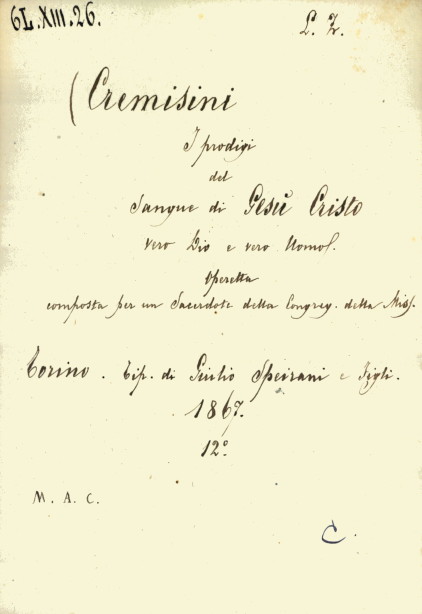 6L.XIII.26.
L. Z.
(Cremisini
I prodigi
del
Sangue di Gesù Cristo
vero Dio e vero Uomo.
Operetta
composta per un Sacerdote della Congreg. della Miss.
Torino. Tip. di Giulio Speirani e Figli.
1867.
12°
M. A. C.
C.